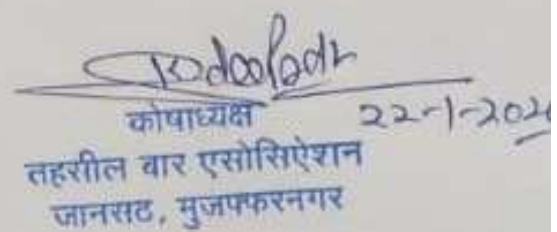 कोषाध्यक्ष
तहसील बार एसोसिएशन
जानसठ, मुजफ्फरनगर